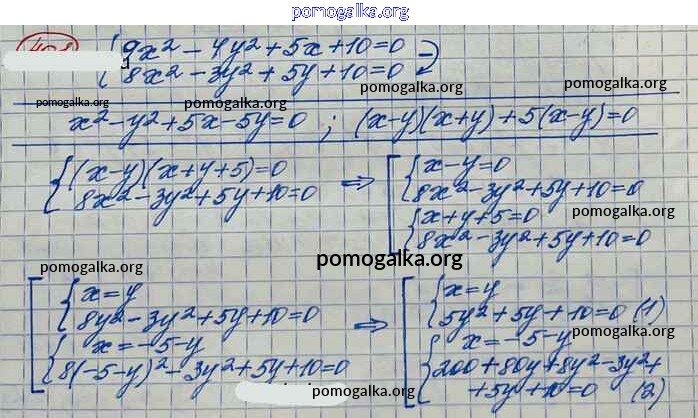 pomogalka.org
408
{9x² - 4y² + 5x + 10 = 0
{8x² - 3y² + 5y + 10 = 0
pomogalka.org
pomogalka.org pomogalka.org pomogalka.org
x² - y² + 5x - 5y = 0 ; (x-y)(x+y) + 5(x-y) = 0
{(x-y)(x+y+5) = 0
{8x² - 3y² + 5y + 10 = 0
⇒
[{x - y = 0
{8x² - 3y² + 5y + 10 = 0
{x + y + 5 = 0
{8x² - 3y² + 5y + 10 = 0
pomogalka.org
pomogalka.org
pomogalka.org
pomogalka.org
[{x = y
{8y² - 3y² + 5y + 10 = 0
{x = -5 - y
{8(-5-y)² - 3y² + 5y + 10 = 0
⇒
[{x = y
{5y² + 5y + 10 = 0 (1)
{x = -5 - y
{200 + 80y + 8y² - 3y² +
+ 5y + 10 = 0 (2)
pomogalka.org
pomogalka.org
pomogalka.org